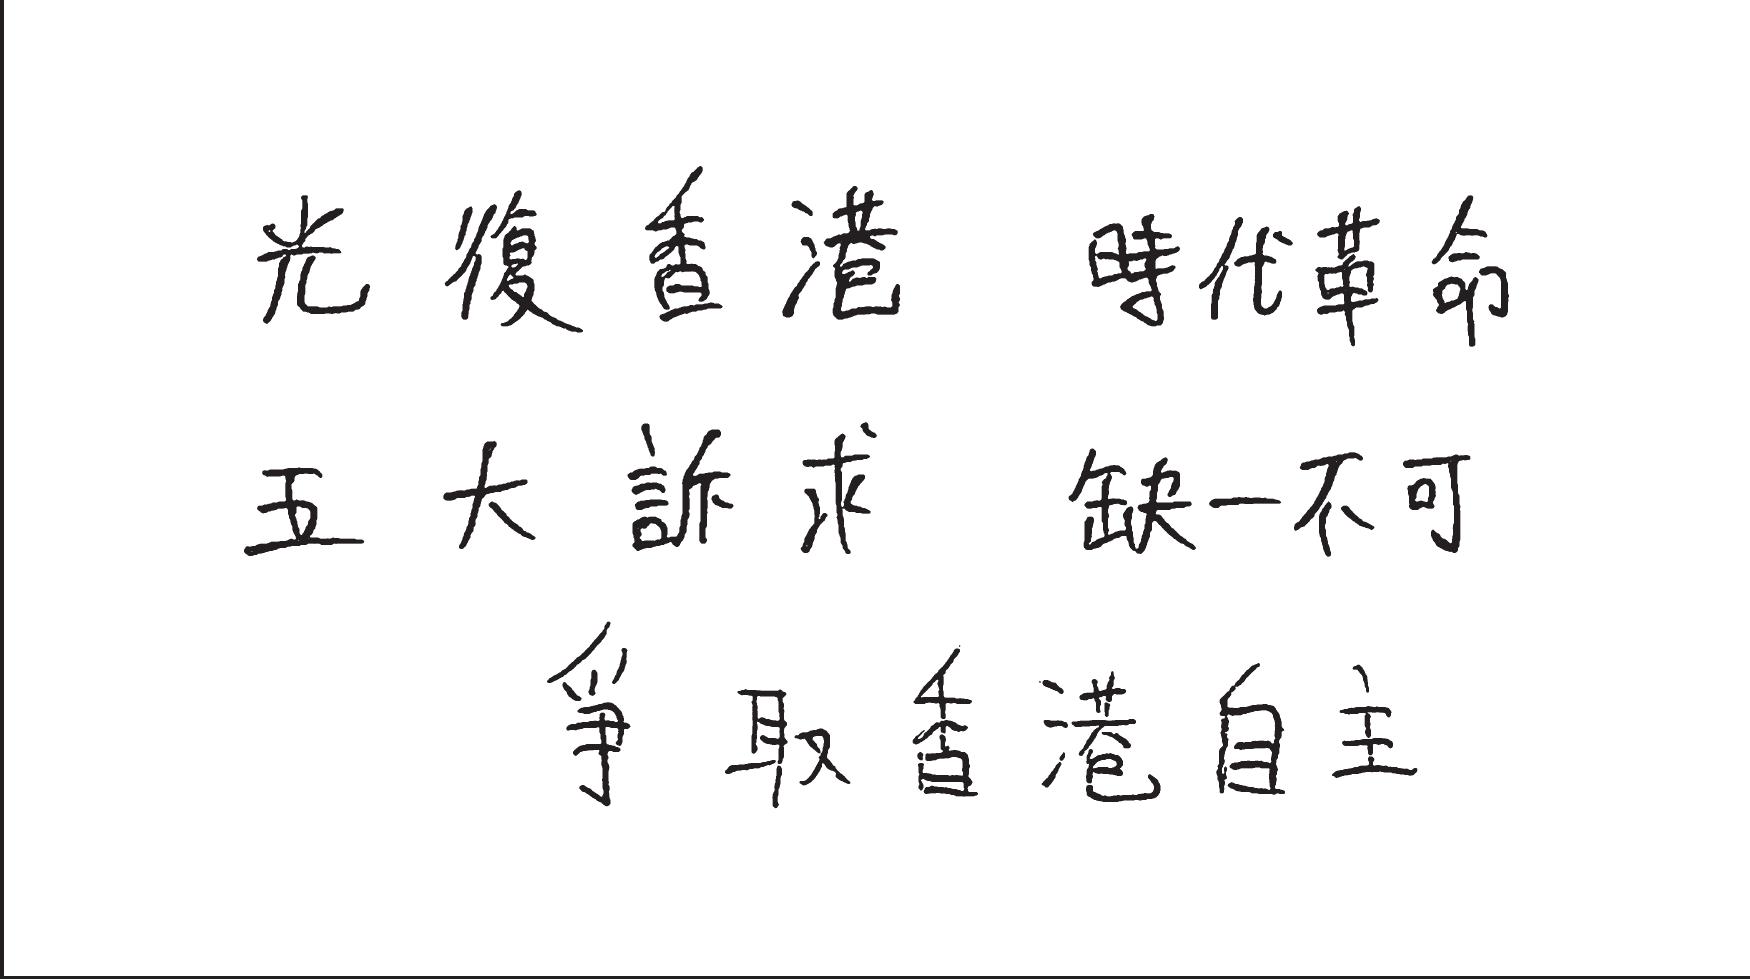 光復香港 時代革命
五大訴求 缺一不可
爭取香港自主